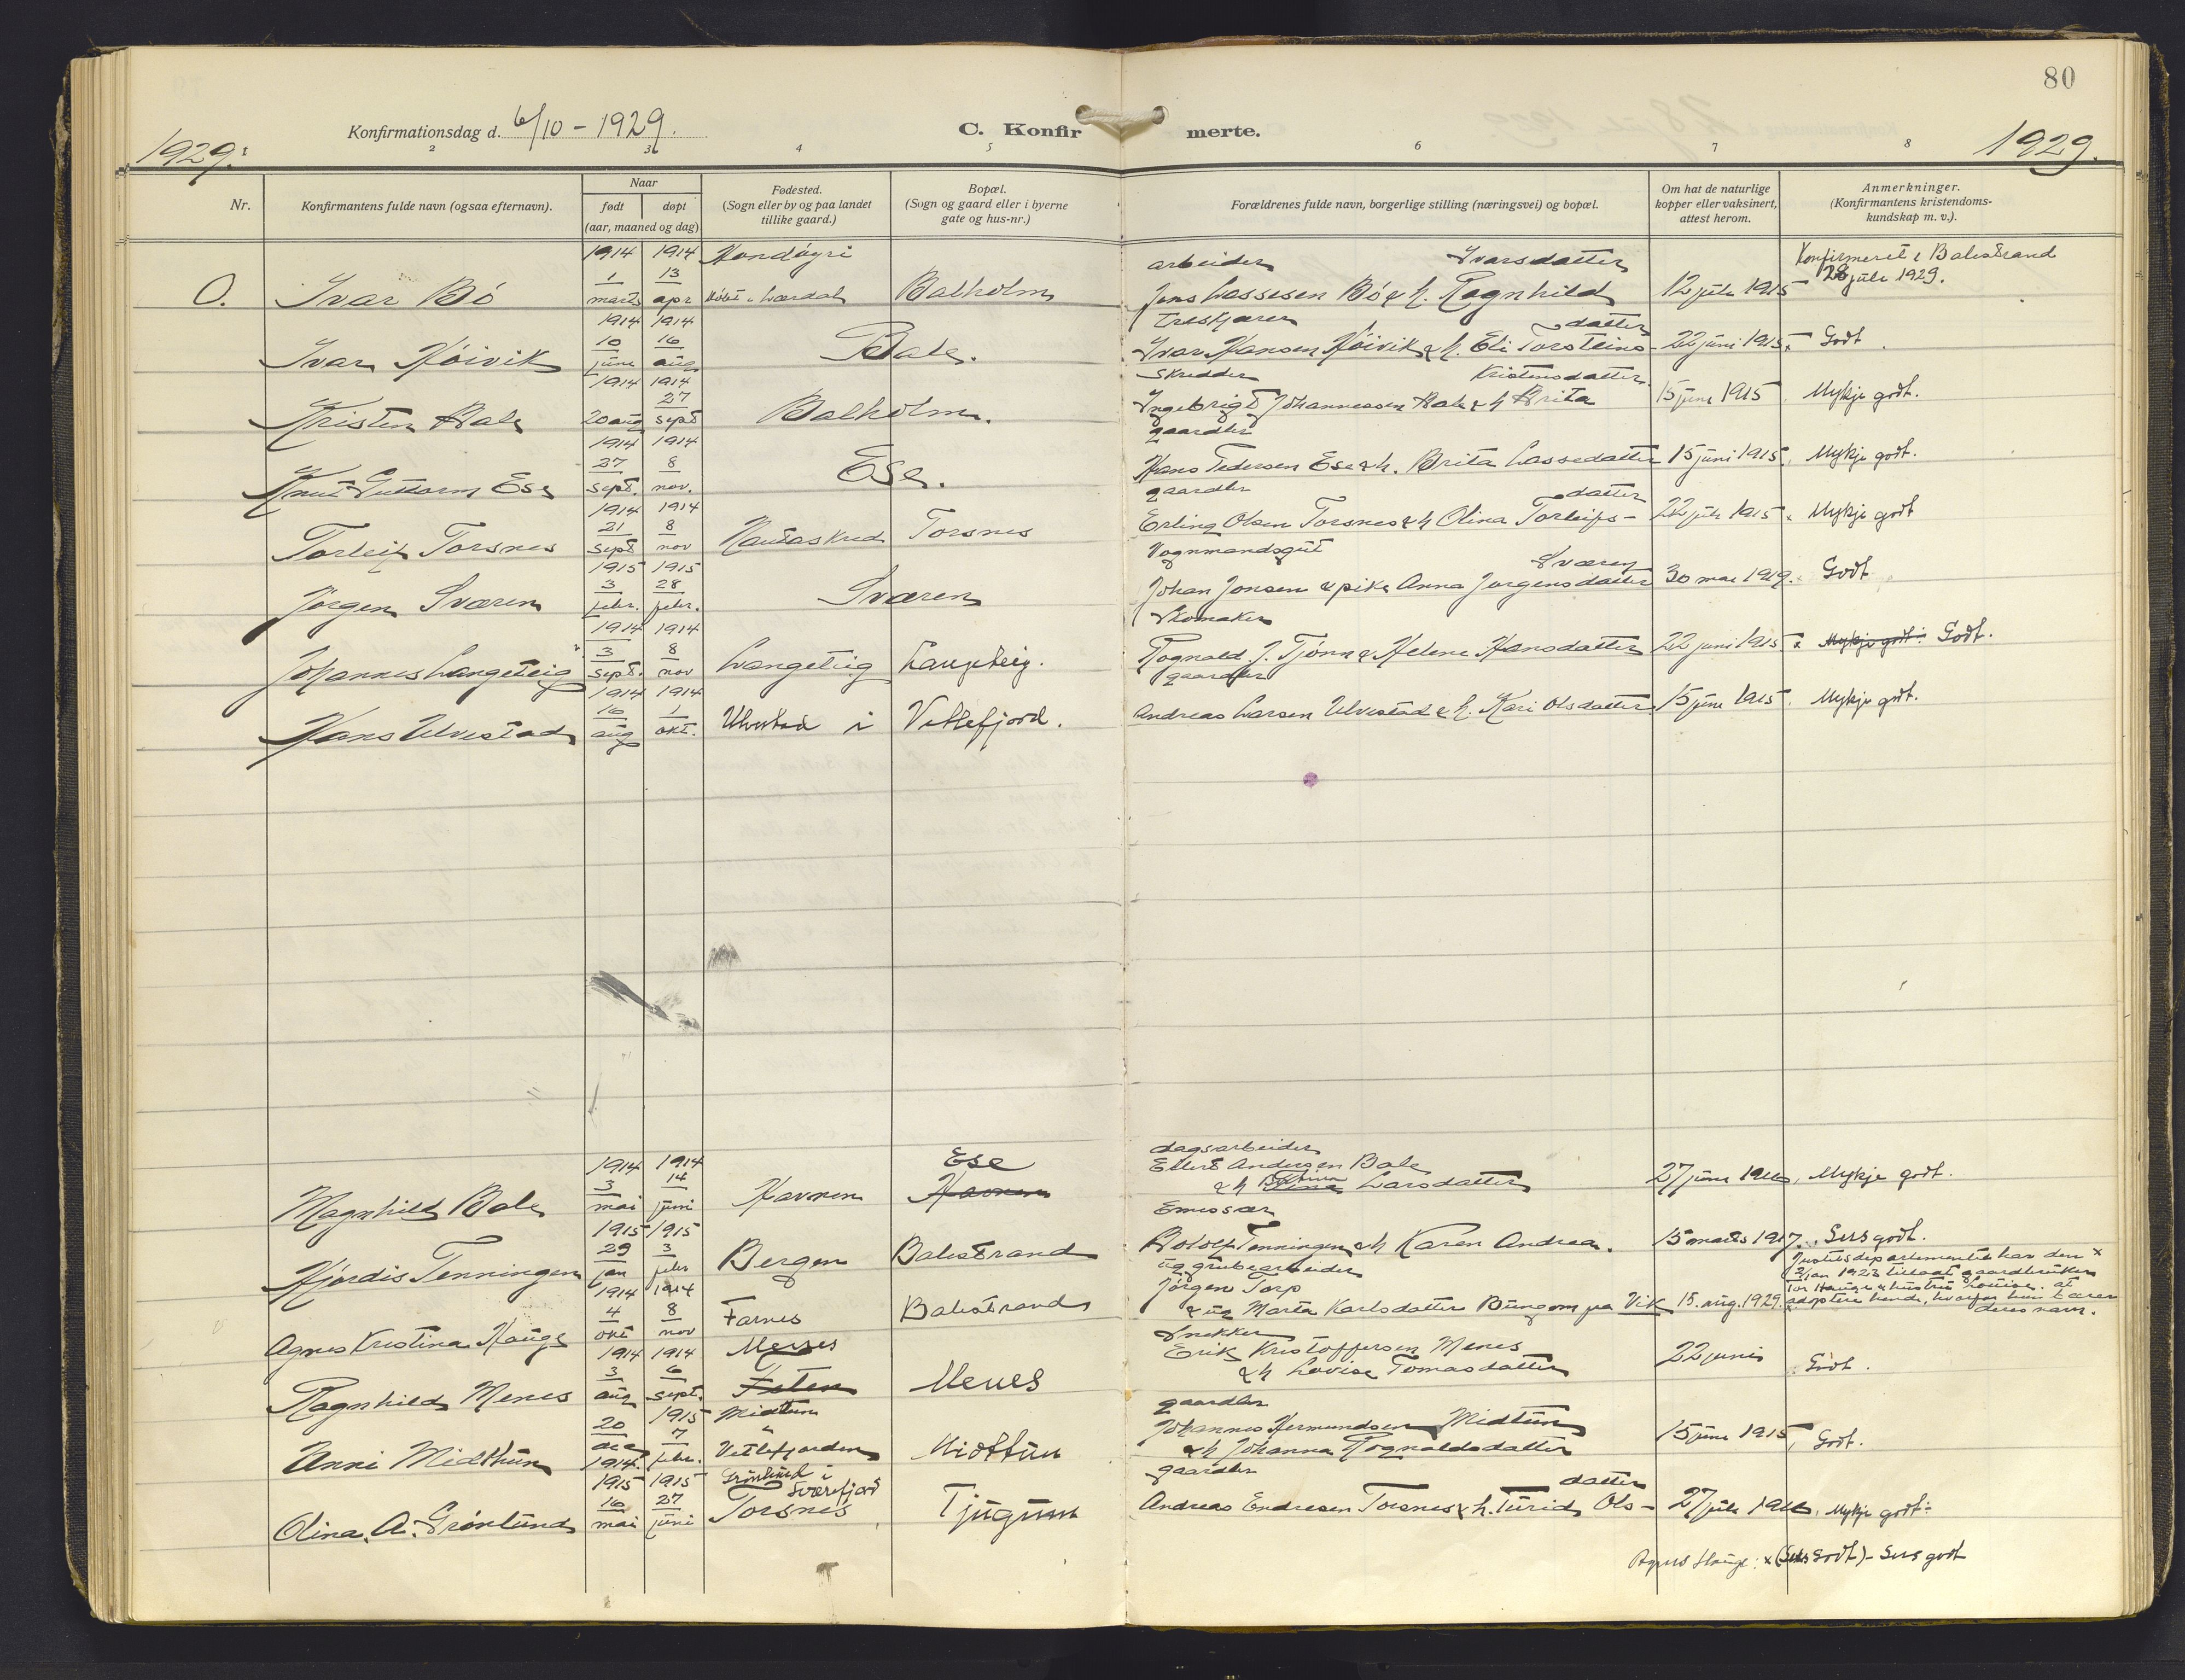 80
1929.
Konfirmationsdag d. 6/10 - 1929.
C. Konfirmerte.
1929.
2 3 4 5 6 7 8
Nr.
Konfirmantens fulde navn (ogsaa efternavn).
Naar
født døpt
(aar, maaned og dag)
Fødested.
(Sogn eller by og paa landet
tillike gaard.)
Bopæl.
(Sogn og gaard eller i byerne
gate og hus-nr.)
Forældrenes fulde navn, borgerlige stilling (næringsvei) og bopæl.
Om hat de naturlige
kopper eller vaksinert,
attest herom.
Anmerkninger.
(Konfirmantens kristendoms-
kundskap m. v.).
1914 1914 arbeider Ivarsdatter Konfirmeret i Balestrand
28 juli 1929.
O. Ivar Bö 1 marts 13 apr Balholm Jens Lassesen Bö & h. Ragnhild 12 juli 1915
1914 1914 datter
Ivar Höivik 10 juni 16 aug Bale. Ivar Hansen Höivik & h. Eli Torsteins- 22 juni 1915. Godt.
1914 1914 skredder Kristensdatter
Kristen Bale 20 aug 27 sept Balholm. Ingebrigt Johannessen Bale & h Brita 15 juni 1915. Mykje godt.
1914 1914 gaardbr
Knut Guttorm Ese 27 sept. 8 nov. Ese. Hans Pedersen Ese & h. Brita Lassedatter 15 juni 1915. Mykje godt.
1914 1914 gaardbr datter
Torleif Torsnes 21 sept 8 nov Torsnes Erling Olsen Torsnes & h Olina Torleifs- 22 juli 1915. Mykje godt
1915 1915 Vognmandsgut Sværen
Jörgen Sværen 3 febr. 28 febr. Sværen Johan Jonsen & pike Anna Jörgensdatter 30 mai 1919. Godt
1914 1914 Skomaker
Johannes Langeteig 3 sept. 8 nov Langeteig Langeteig. Rognald J. Tjönn & Helene Hansdatter 22 juni 1915. Mykje godt. Godt.
1914 1914 gaardbr
Hans Ulvestad 16 aug 1 okt. Ulvestad i Vetlefjord. Andreas Larsen Ulvestad & h. Kari Olsdatter 15 juni 1915. Mykje godt.
1914 1914 Ese dagsarbeider
Ellert Andersen Bale
Magnhild Bale 3 mai 14 juni Havnen Havnen & h Larsdatter 27 juni 1916, Mykje godt.
1915 1915 Emissær
Hjördis Tenningen 29 jan 3 febr Bergen Balestrand Botolf Tenningen & h Karen Andrea. 15 marts 1917. Sers godt.
1914 1914 ug grubearbeider
Jörgen Torp
Agnes Kristina Hauge 4 okt 8 nov Farnes Balestrand & ug Marta Karlsdatter Bungom paa Vik 15. aug. 1929.
Justisdepartementet har den
2/jan 1923 tillatt gaardbruker
Tor Hauge & hustru Louise at
adoptere hende, hvorfor hun bærer
deres navn.
1914 1914 Menes Snekker
Erik Kristoffersen Menes
Ragnhild Menes 3 aug 6 sept. Menes & h Lovise Tomasdatter 22 juni Godt.
20 1915 Midtun gaardbr
Johannes Hermundsen Midtun
Unni Midthun des 1914. 7 febr. Vetlefjorden Midttun & h Johanna Rognaldsdatter 15 juni 1915, Godt.
1915 1915 Grönlund i Sværefjord gaardbr datter
Olina A. Grönlund 16 mai 27 juni Torsnes Tjugum Andreas Endresen Torsnes & h. Turid Ols- 27 juli 1916, Mykje godt.
Agnes Hauge: x (Sers Godt) - Sers godt